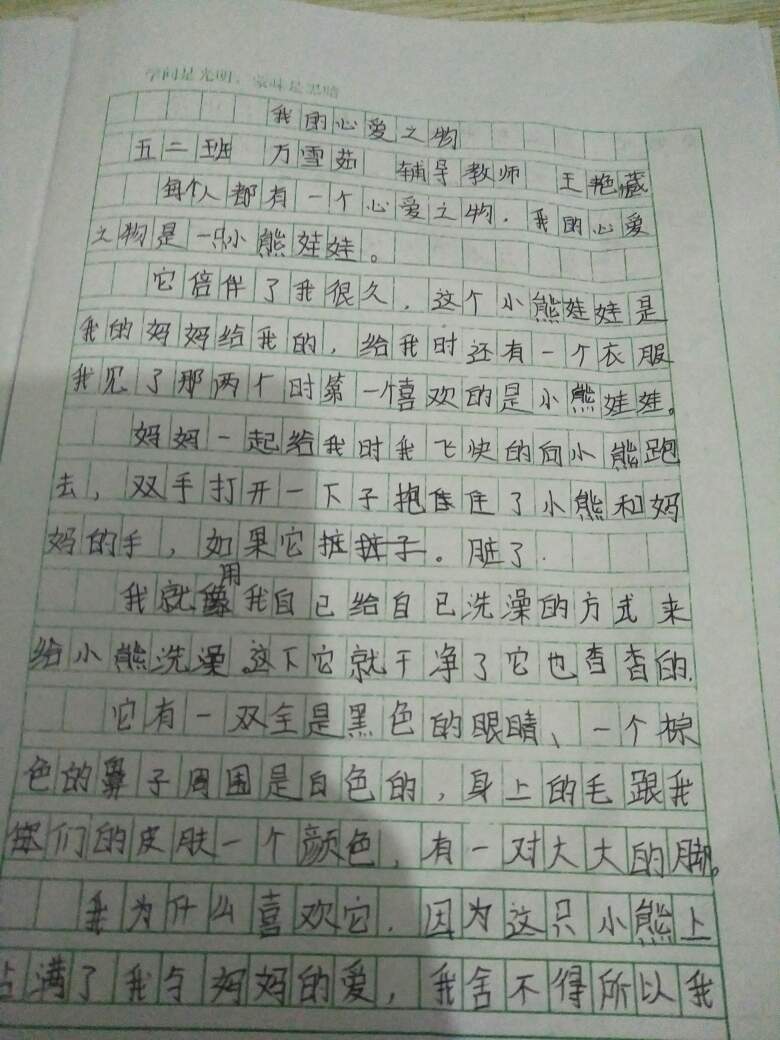 学问是光明，蒙昧是黑暗
我的心爱之物
五二班 万雪茹 辅导教师 王艳藏
每个人都有一个心爱之物，我的心爱
之物是一只小熊娃娃。
它倍伴了我很久，这个小熊娃娃是
我的妈妈给我的，给我时还有一个衣服
我见了那两个时第一个喜欢的是小熊娃娃。
妈妈一起给我时我飞快的向小熊跑
去，双手打开一下子抱住了小熊和妈
妈的手，如果它脏了.
我就用我自己给自己洗澡的方式来
给小熊洗澡这下它就干净了它也香香的.
它有一双全是黑色的眼睛、一个棕
色的鼻子周围是白色的，身上的毛跟我
们的皮肤一个颜色，有一对大大的脚。
我为什么喜欢它.因为这只小熊上
沾满了我与妈妈的爱，我舍不得所以我